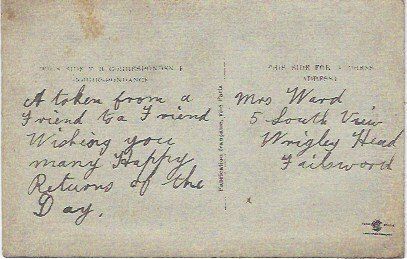 THIS SIDE FOR CORRESPONDENCE
CORRESPONDANCE
A token from a
Friend to a Friend
Wishing you
many Happy
Returns of the
Day.
Fabrication française,
THIS SIDE FOR ADDRESS
ADRESSE
Mrs Ward
5 South View
Wrigley Head
Failsworth